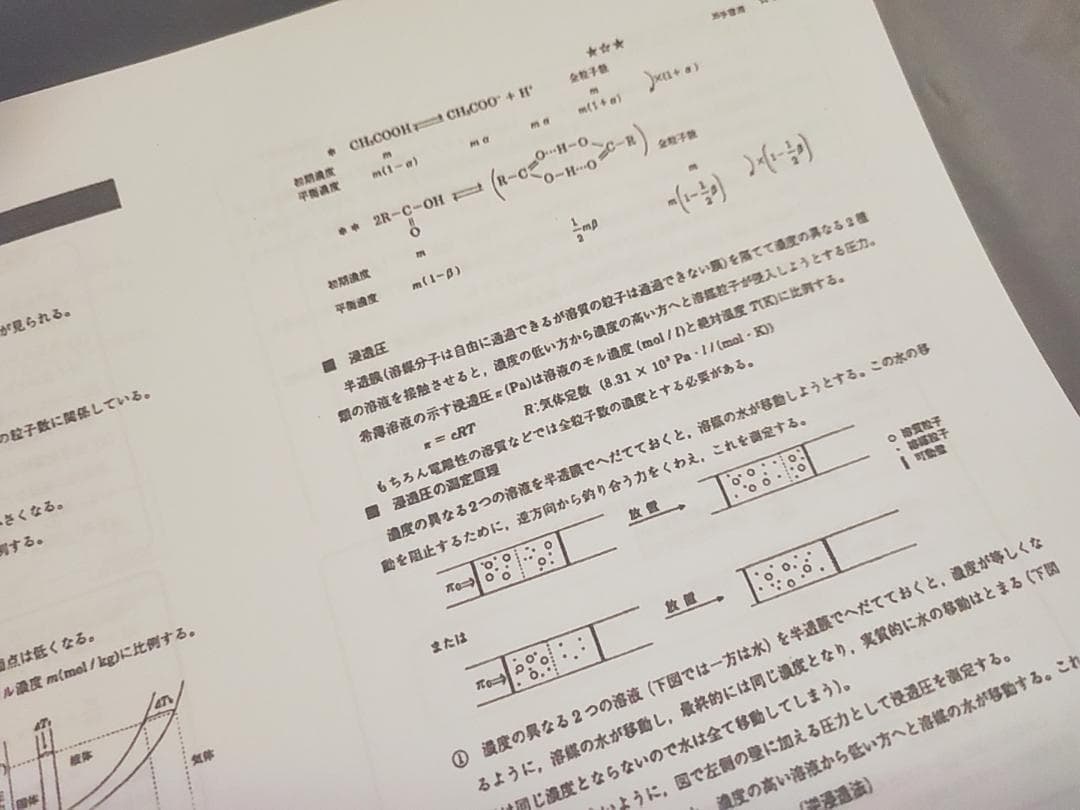 が見られる。
の粒子数に関係している。
さくなる。
例する。
固点は低くなる。
ル濃度 m(mol/kg)に比例する。
ΔTf
ΔTb
液体
固体
気体
★☆★
* CH₃COOH ⇌ CH₃COO⁻ + H⁺ 全粒子数
初期濃度 m m
平衡濃度 m(1-α) mα mα m(1+α) ×(1+α)
** 2R-C-OH ⇌ (R-C O…H-O C-R) 全粒子数
O O-H…O
初期濃度 m m
平衡濃度 m(1-β) 1/2 mβ m(1-1/2β) ×(1-1/2β)
■ 浸透圧
半透膜(溶媒分子は自由に通過できるが溶質の粒子は通過できない膜)を隔てて濃度の異なる2種
類の溶液を接触させると，濃度の低い方から濃度の高い方へと溶媒粒子が侵入しようとする圧力。
希薄溶液の示す浸透圧π(Pa)は溶液のモル濃度(mol/l)と絶対温度T(K)に比例する。
π = cRT R:気体定数 (8.31 × 10³ Pa・l/(mol・K))
もちろん電離性の溶質などでは全粒子数の濃度とする必要がある。
■ 浸透圧の測定原理
濃度の異なる2つの溶液を半透膜でへだてておくと，溶媒の水が移動しようとする。この水の移
動を阻止するために，逆方向から釣り合う力をくわえ，これを測定する。
○ 溶質粒子
・ 溶媒粒子
可動壁
π₀⇒
放置
または
π₀⇒
放置
① 濃度の異なる2つの溶液（下図では一方は水）を半透膜でへだてておくと，濃度が等しくな
るように，溶媒の水が移動し，最終的には同じ濃度となり，実質的に水の移動はとまる（下図
は同じ濃度とならないので水は全て移動してしまう)。
ように，図で左側の壁に加える圧力として浸透圧を測定する。
濃度の高い溶液から低い方へと溶媒の水が移動する。これ
(逆浸透法)